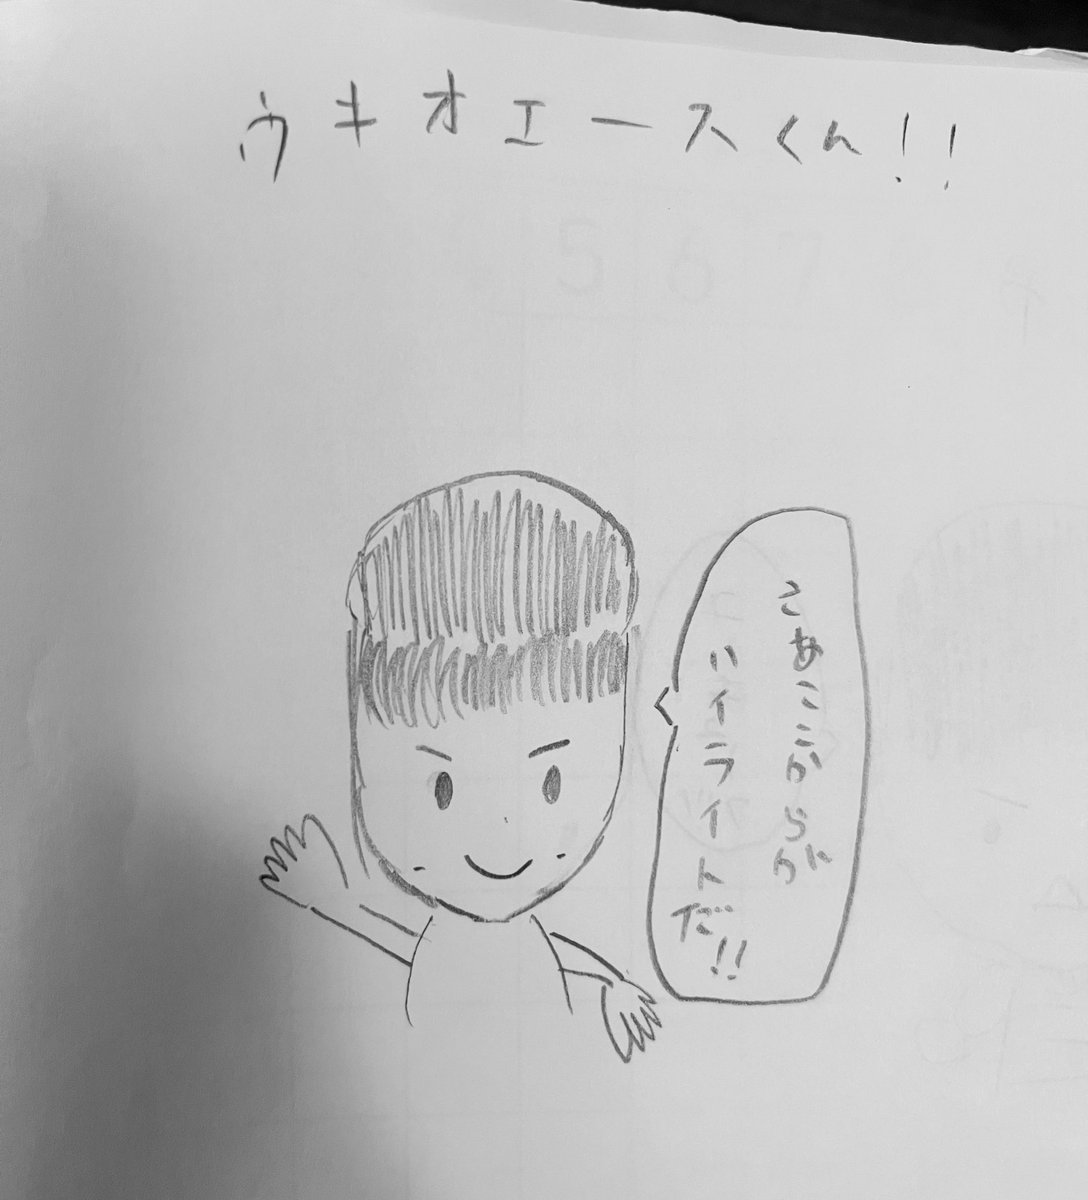 ウキオエースくん!!
さあここからが
ハイライトだ!!
5 6 7